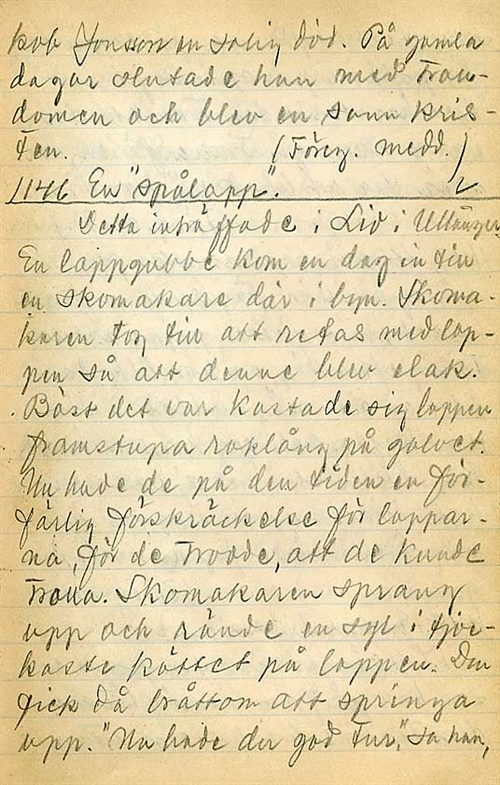 kob Jonsson en salig död. På gamla
dagar slutade han med trau-
domen och blev en sann kris-
ten. (Föreg. medd.)
1146 En "spålapp".
Detta inträffade i Lid i Ullånger.
En lappgubbe kom en dag in till
en skomakare där i byn. Skoma-
karen tog till att retas med lap-
pen så att denne blev elak.
Bäst det var kastade sig lappen
framstupa raklång på golvet.
Nu hade de på den tiden en för-
färlig förskräckelse för lappar-
na, för de trodde, att de kunde
trolla. Skomakaren sprang
upp och rände en syl i tjoc-
kaste köttet på lappen. Den
fick då bråttom att springa
upp. "Nu hade du god tur," sa han,